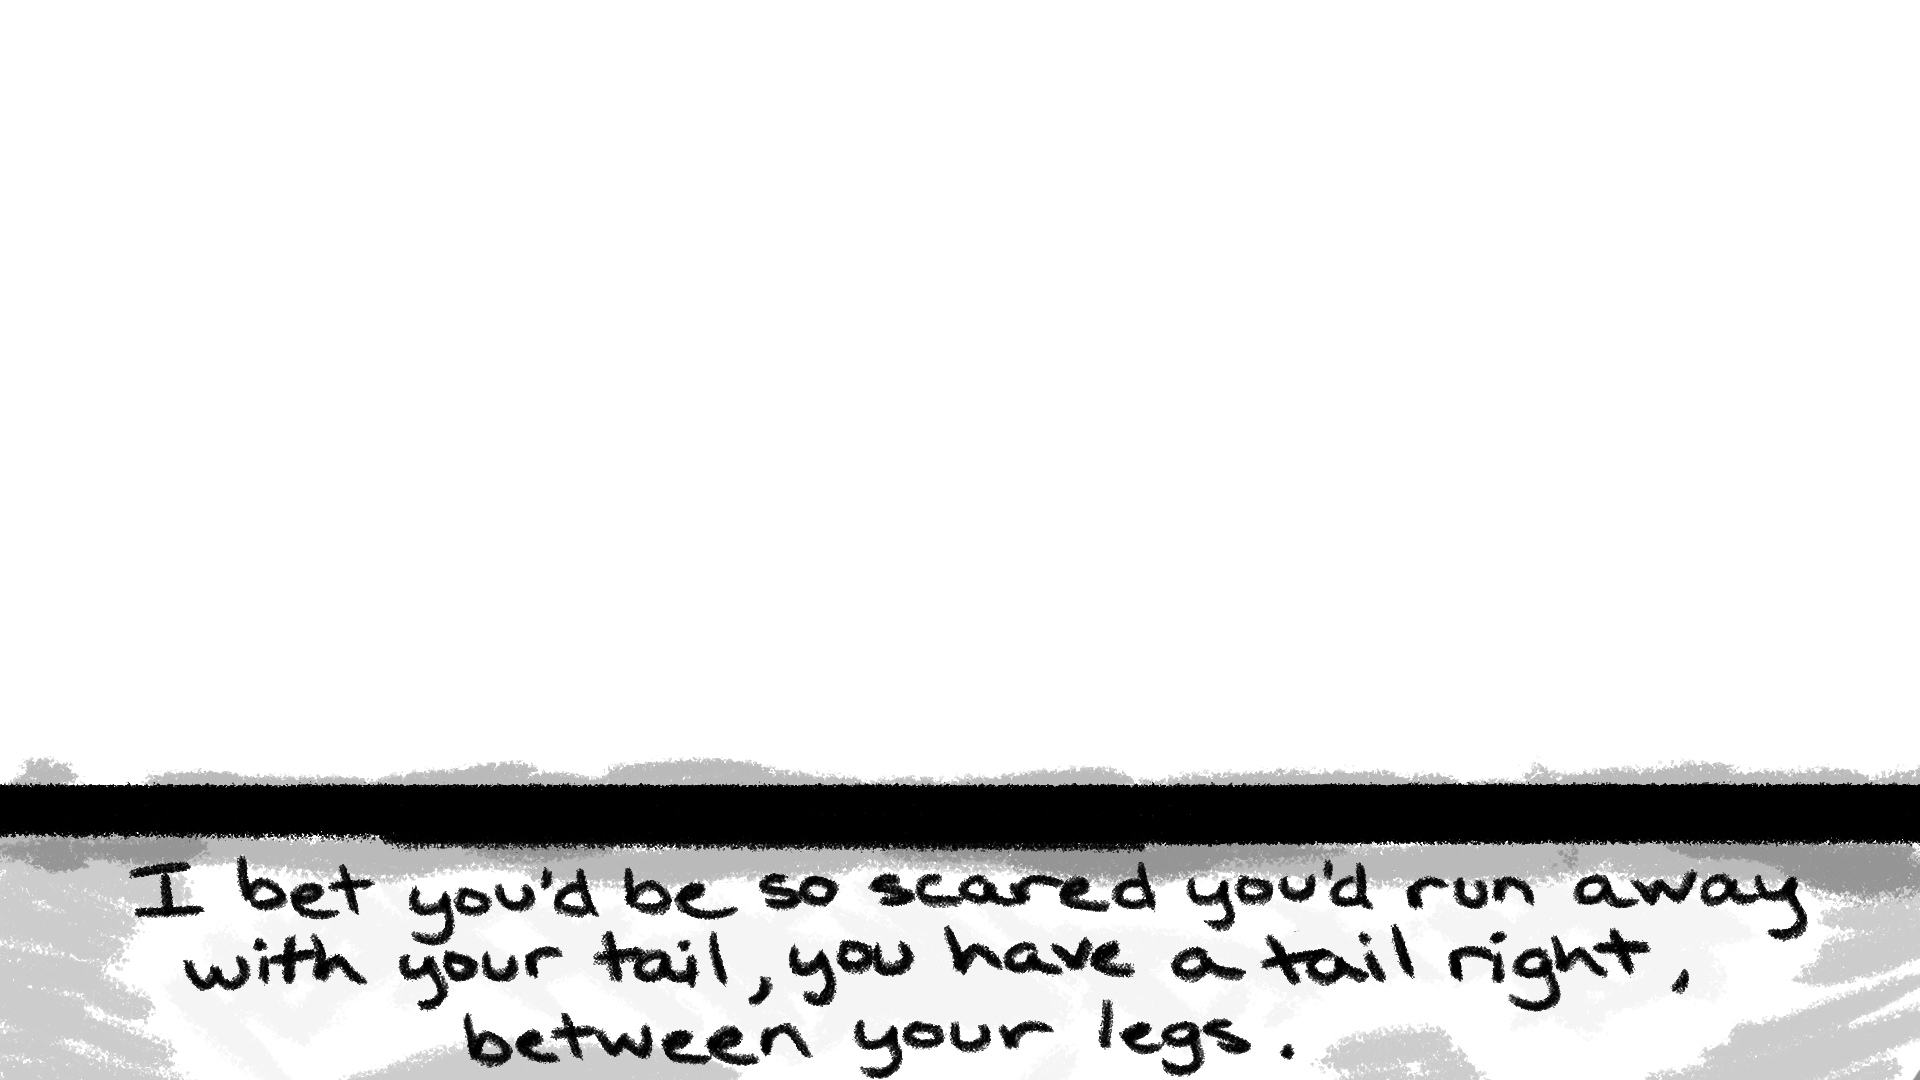 I bet you'd be so scared you'd run away
with your tail, you have a tail right,
between your legs.